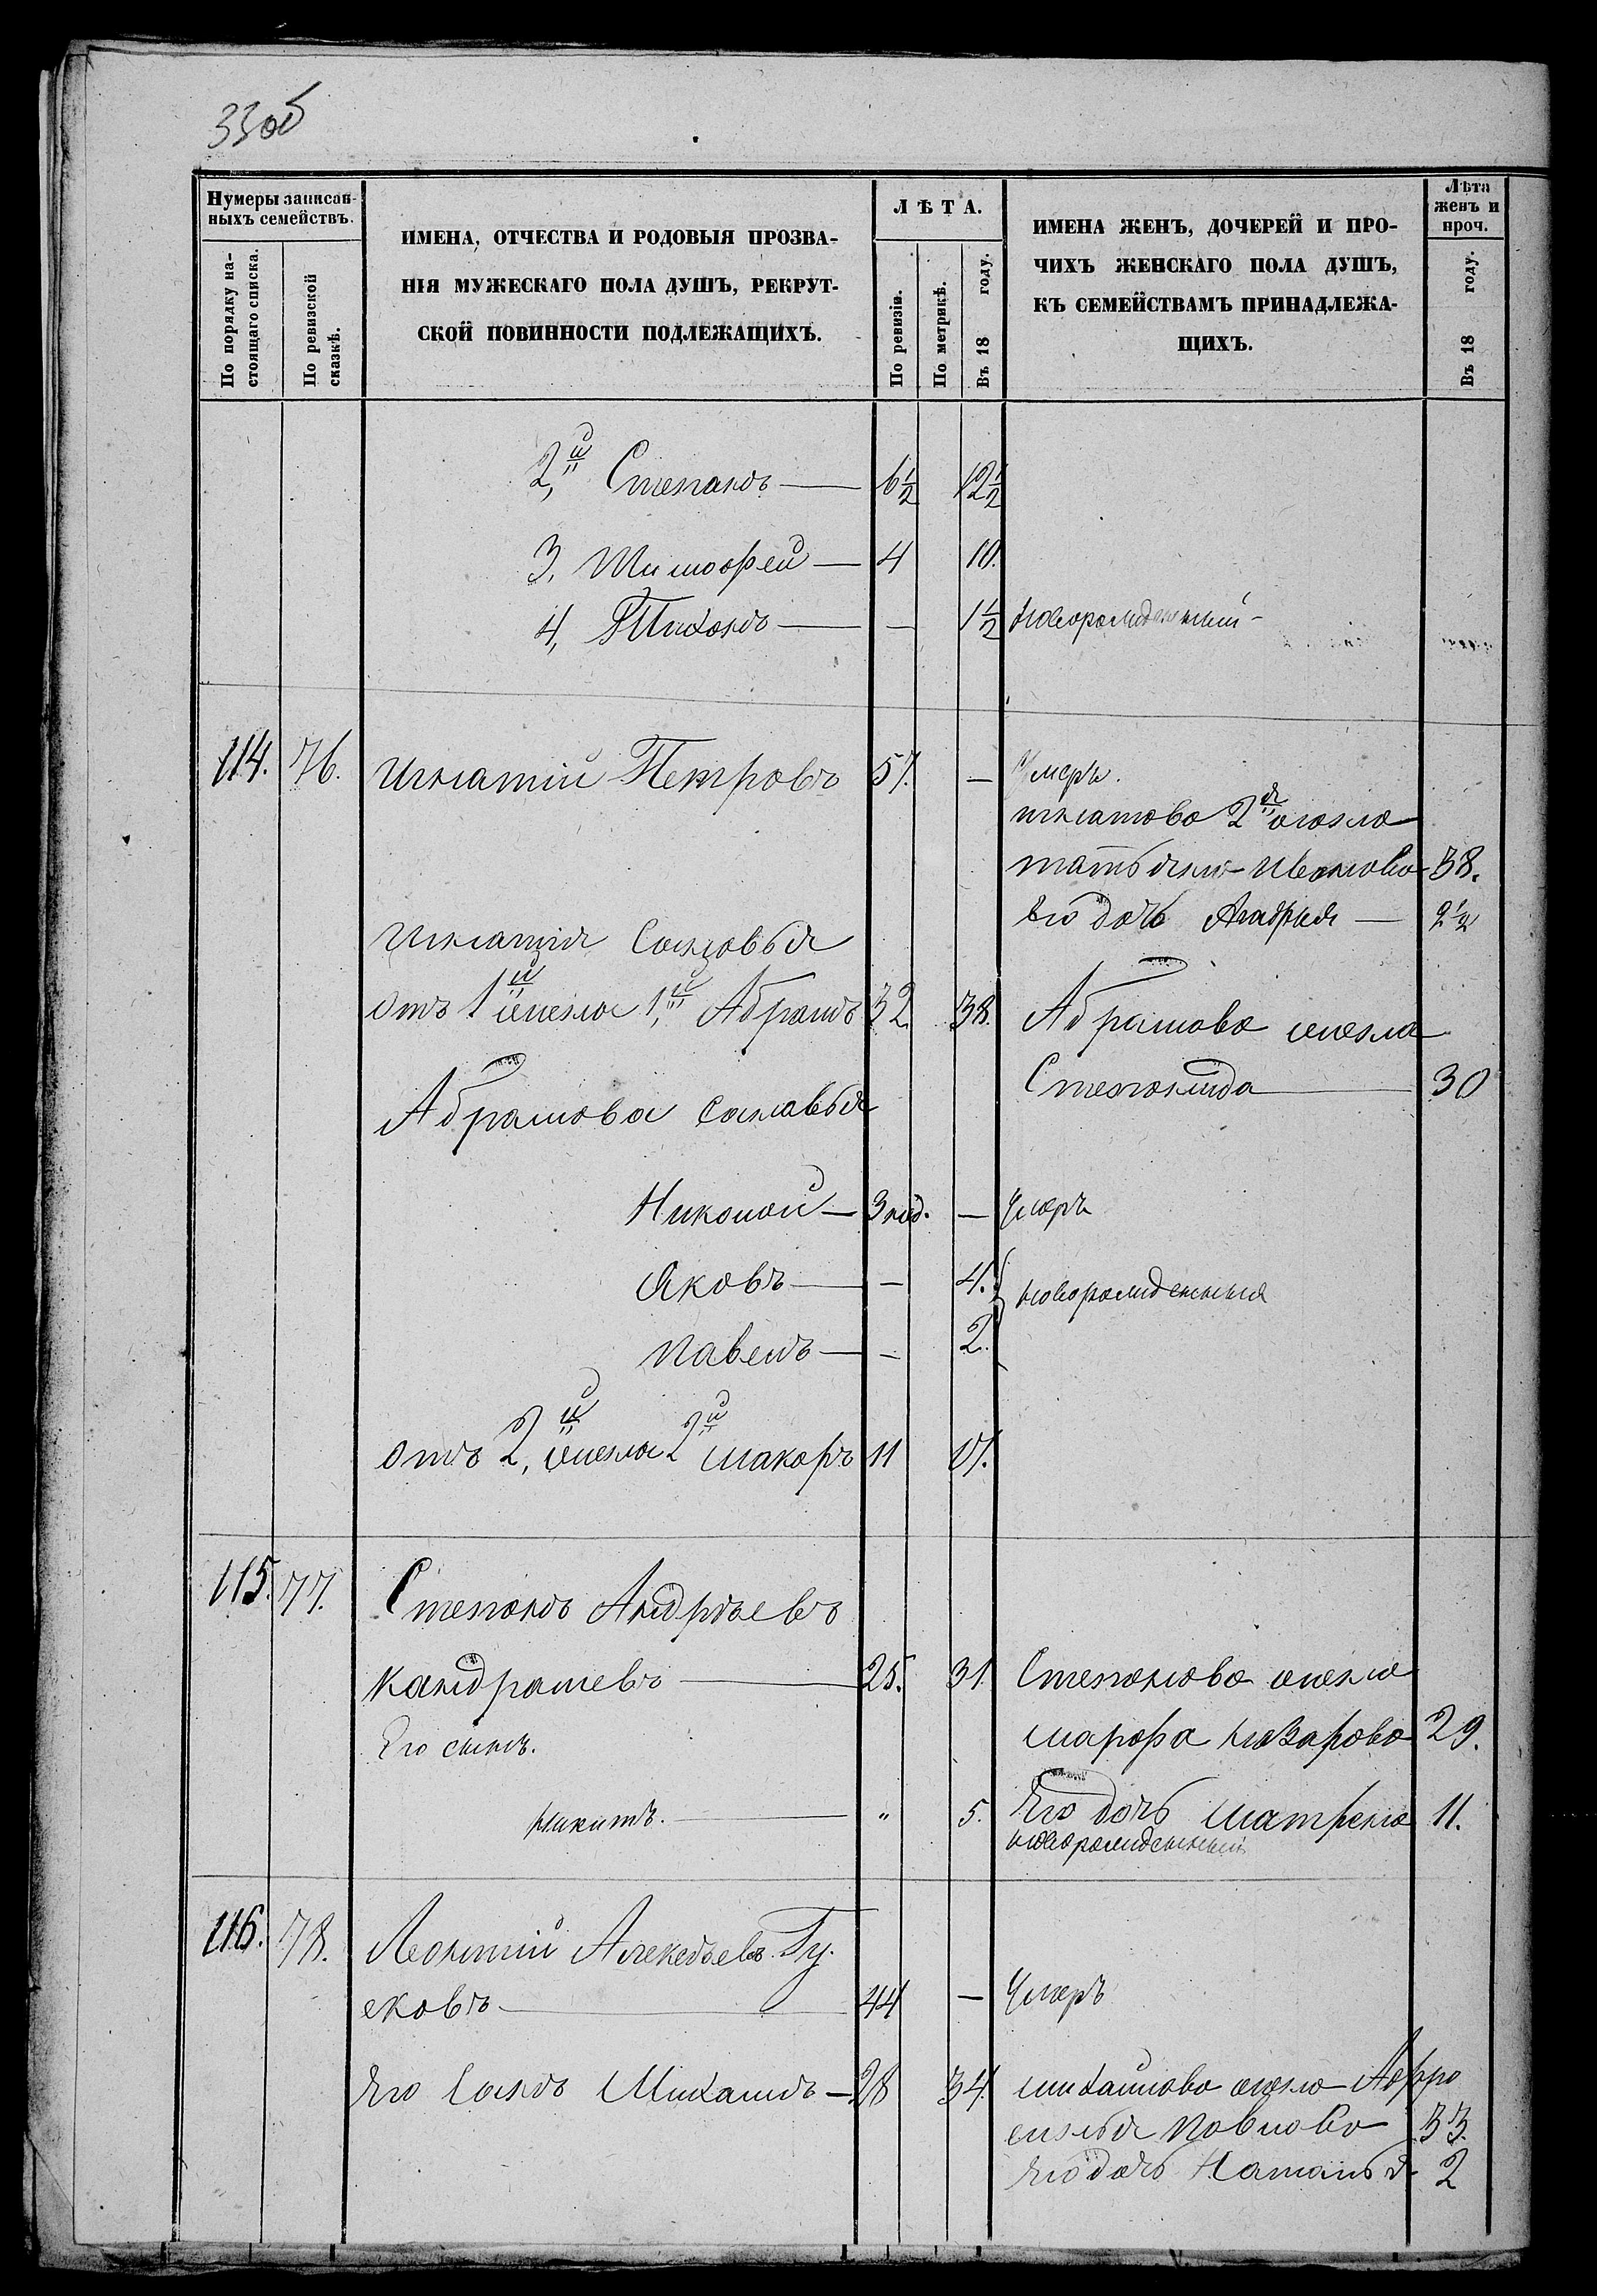 33об
Нумеры записан-
ныхъ семействъ.
По порядку на-
стоящаго списка.
По ревизской
сказкѣ.
ИМЕНА, ОТЧЕСТВА И РОДОВЫЯ ПРОЗВА-
НІЯ МУЖЕСКАГО ПОЛА ДУШЪ, РЕКРУТ-
СКОЙ ПОВИННОСТИ ПОДЛЕЖАЩИХЪ.
ЛѢТА.
По ревизіи.
По метрикѣ.
Въ 18 году.
ИМЕНА ЖЕНЪ, ДОЧЕРЕЙ И ПРО-
ЧИХЪ ЖЕНСКАГО ПОЛА ДУШЪ,
КЪ СЕМЕЙСТВАМЪ ПРИНАДЛЕЖА-
ЩИХЪ.
Лѣта
женъ и
проч.
Въ 18 году.
2й Степанъ — 6½ 12½
3, Тимофей — 4 10.
4, Тихонъ — — 1½ новорожденный
114. 76. Игнатій Петровъ 57. — умеръ.
игнатова 2я жена
татьяна Иванова 38.
Его дочь — 9½
Игнатія Сыновья
отъ 1й жены 1й Абрамъ 32 38. Абрамова жена
Степанида — 30
Абрамова сыновья
Николай — 3 нед. — умеръ
Яковъ — — 4. новорожденныя
Павелъ — — 2.
отъ 2й жены 2й макаръ 11 17.
115. 77. Степанъ Андрѣевъ
кандрашевъ — 25. 31. Степанова жена
марфа назарова 29.
Его сынъ.
никита. — " 5. Его дочь матрена 11.
новорожденный
116. 78. Леонтій Алексѣевъ Гу-
сковъ — 44 — умеръ
Его Сынъ Михаилъ — 28 34. михайлова жена Афро
синья павлова 33.
Его дочь Наталья 2